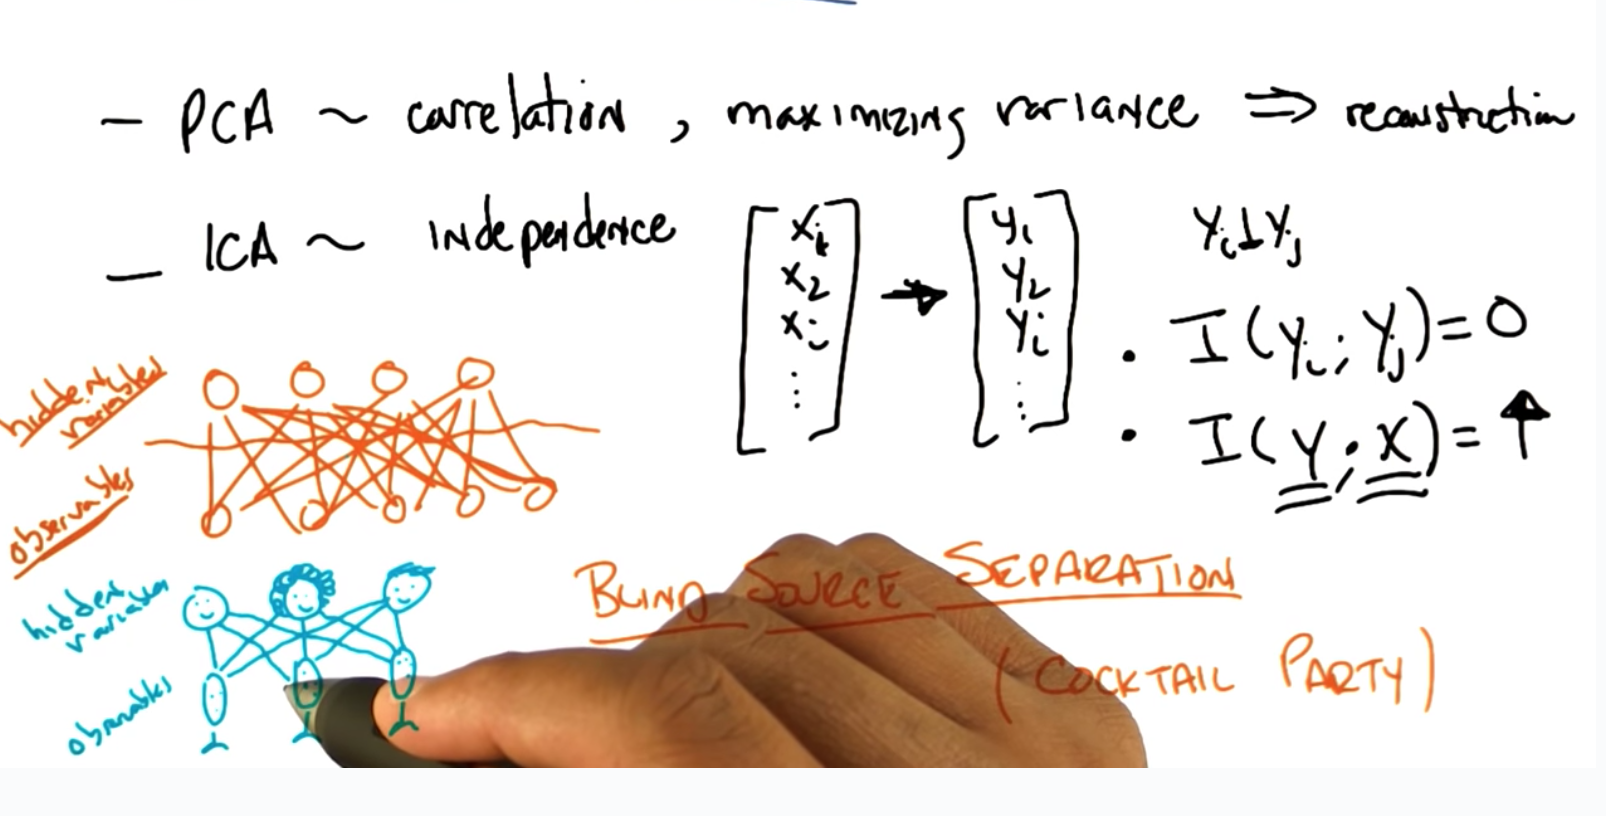 – PCA ~ correlation, maximizing variance ⇒ reconstruction
– ICA ~ independence
[x₁ x₂ xᵢ ⋮] → [y₁ y₂ yᵢ ⋮]
yᵢ ⊥ yⱼ
• I(yᵢ; yⱼ) = 0
• I(Y; X) = ↑
hidden variables
observables
hidden variables
observables
BLIND SOURCE SEPARATION
(COCKTAIL PARTY)